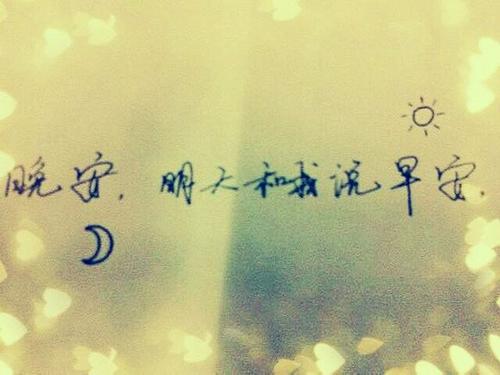 晚安, 明天和我说早安.